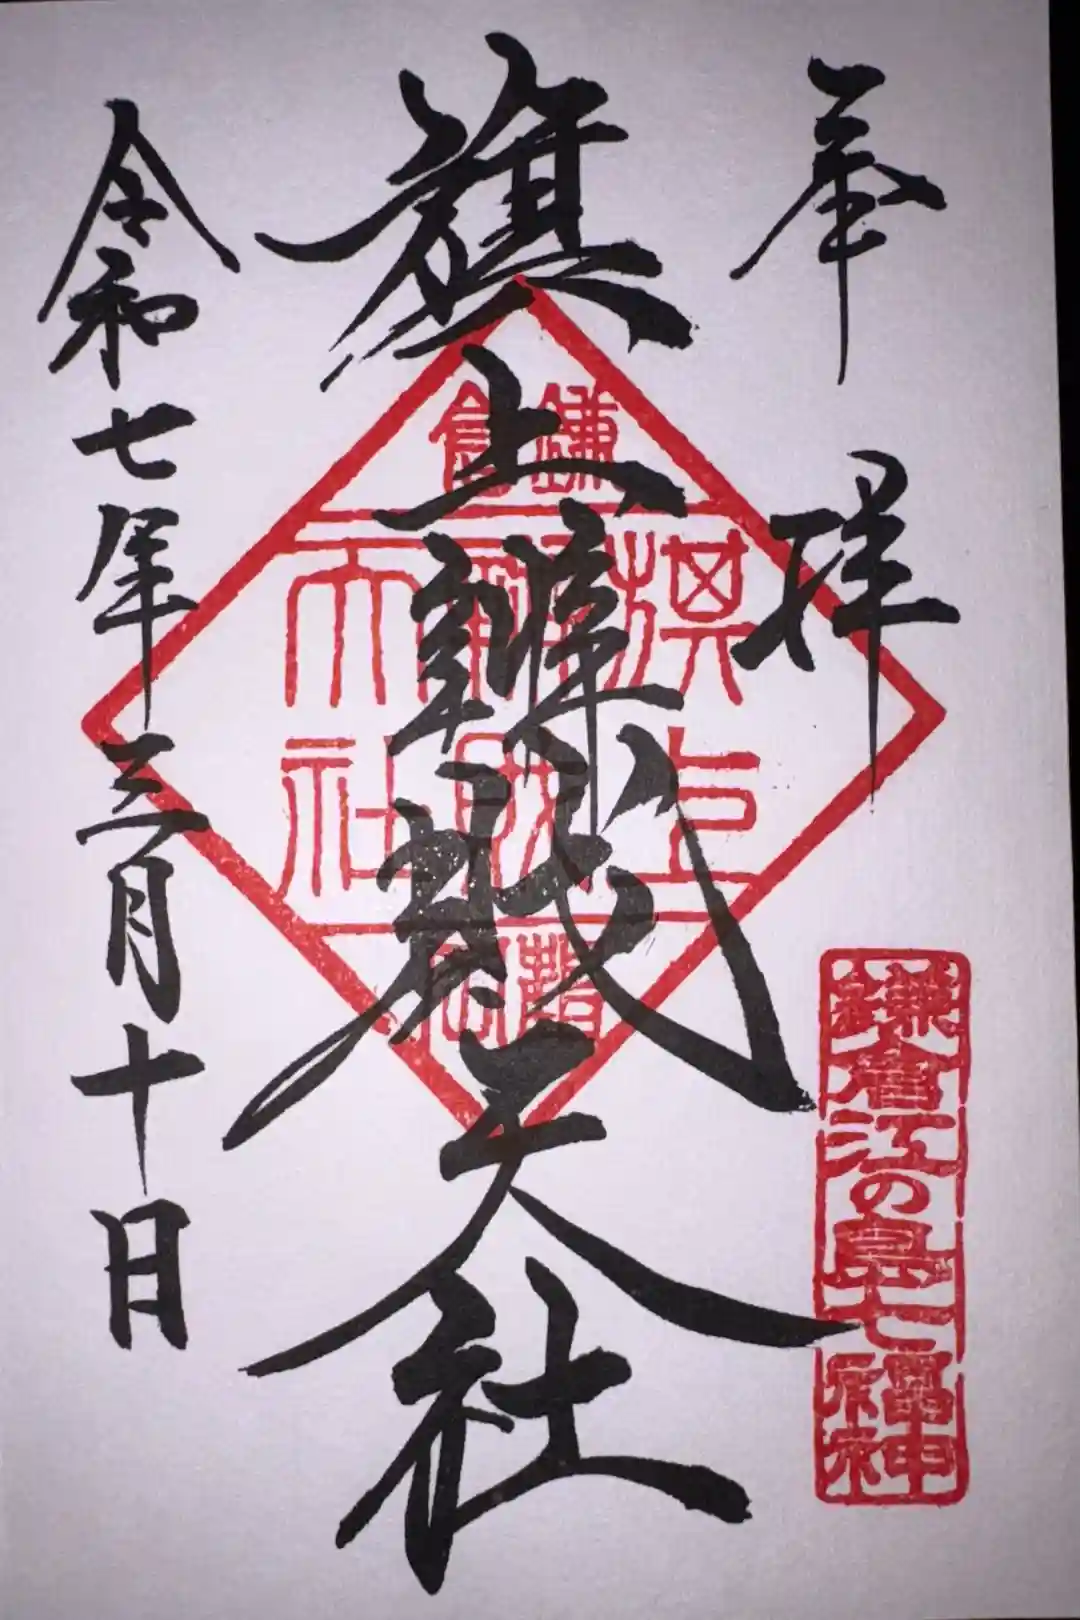 奉拝
鎌倉江の島七福神
旗上辨財天社
鎌倉
旗上
辨財
天社
令和七年三月十日